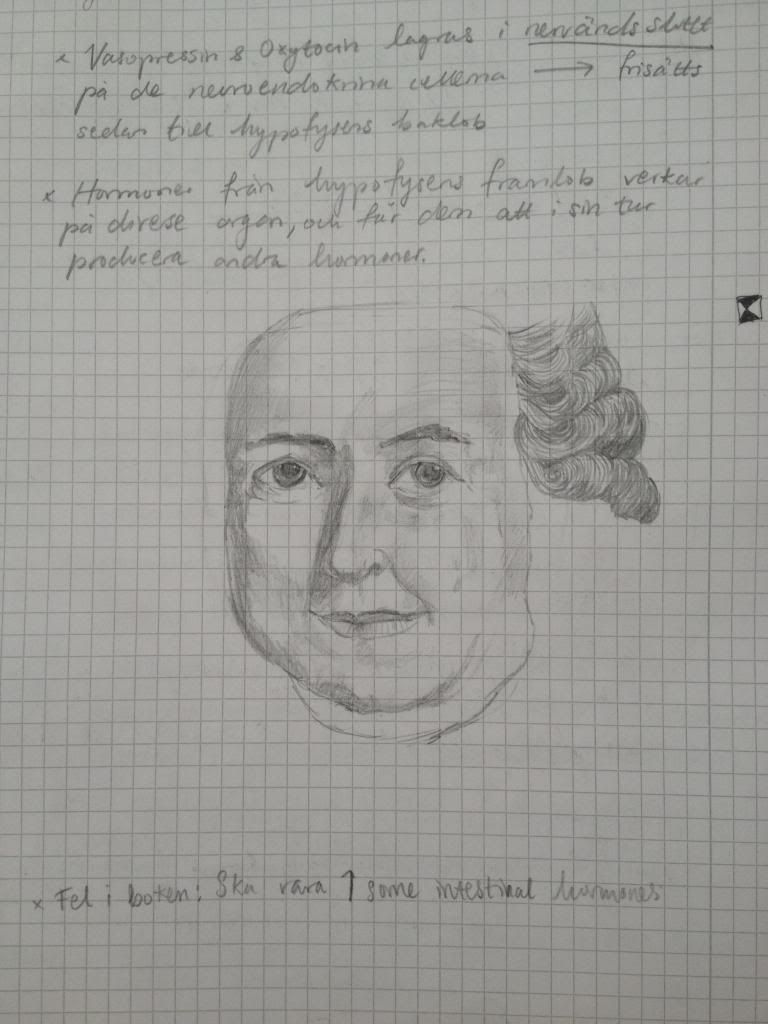 × Vasopressin & Oxytocin lagras i nervändsslutt
på de neuroendokrina cellerna → frisätts
sedan till hypofysens baklob
× Hormoner från hypofysens framlob verkar
på diverse organ, och får dem att i sin tur
producera andra hormoner.
× Fel i boken: Ska vara ↑ some intestinal hormones